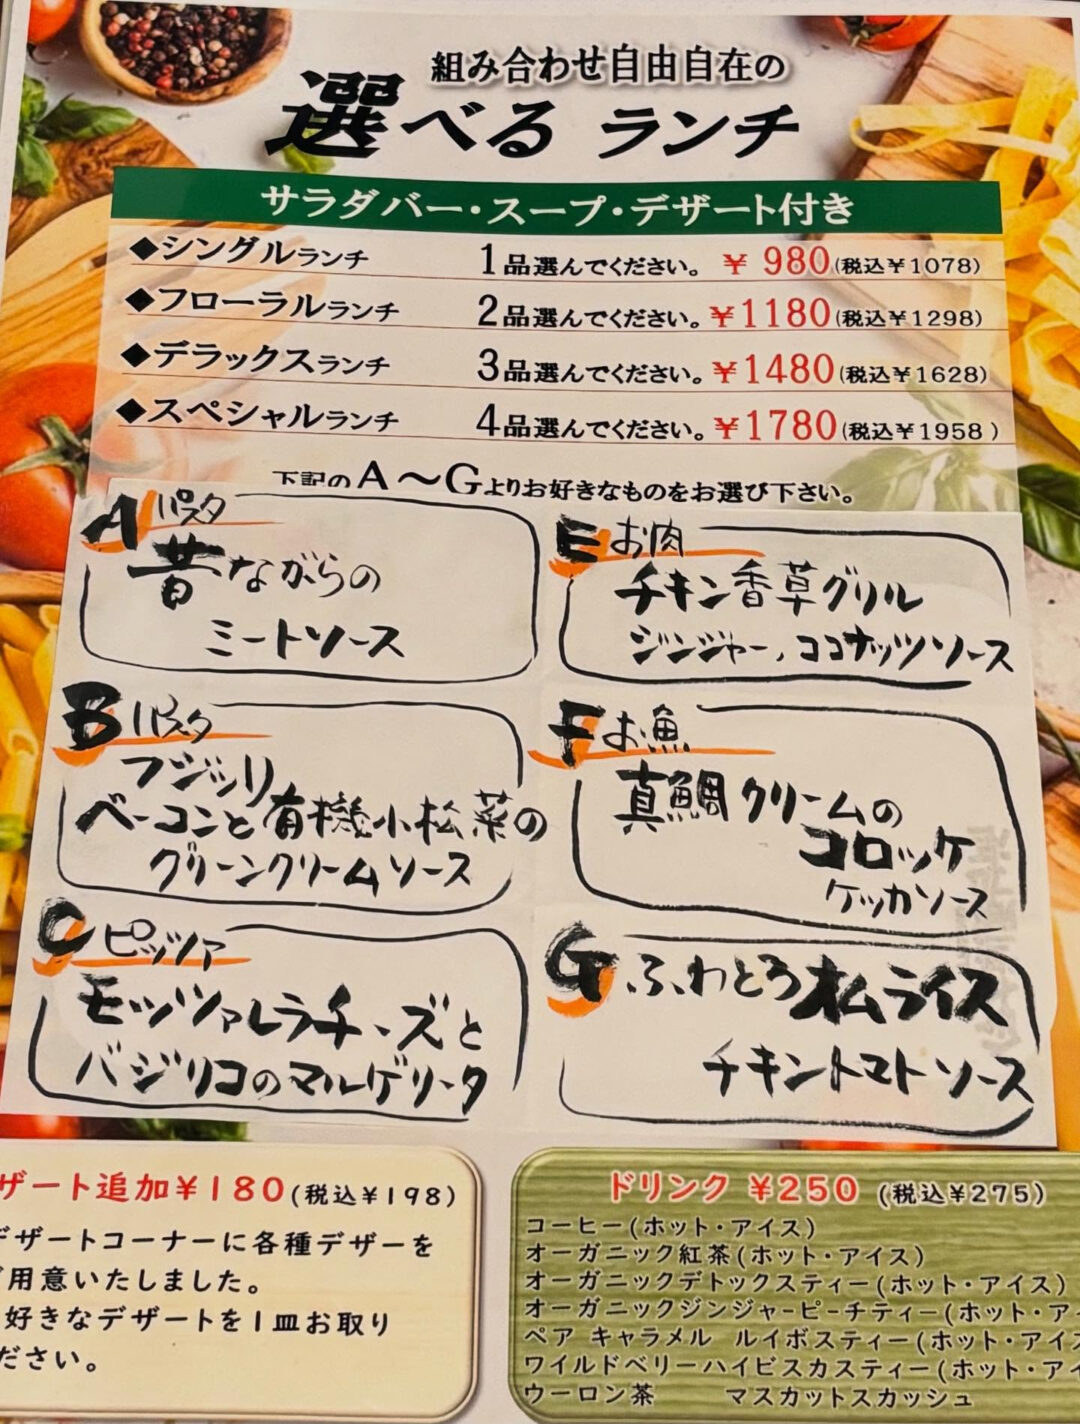 組み合わせ自由自在の
選べる ランチ
サラダバー・スープ・デザート付き
◆シングルランチ 1品選んでください。 ¥ 980(税込¥1078)
◆フローラルランチ 2品選んでください。¥1180(税込¥1298)
◆デラックスランチ 3品選んでください。¥1480(税込¥1628)
◆スペシャルランチ 4品選んでください。¥1780(税込¥1958)
下記のA〜Gよりお好きなものをお選び下さい。
A パスタ
昔ながらの
ミートソース
B パスタ
フジッリ
ベーコンと有機小松菜の
グリーンクリームソース
C ピッツァ
モッツァレラチーズと
バジリコのマルゲリータ
E お肉
チキン香草グリル
ジンジャー、ココナッツソース
F お魚
真鯛クリームの
コロッケ
ケッカソース
G ふわとろオムライス
チキントマトソース
ザート追加¥180(税込¥198)
デザートコーナーに各種デザーを
ご用意いたしました。
好きなデザートを1皿お取り
ださい。
ドリンク ¥250 (税込¥275)
コーヒー(ホット・アイス)
オーガニック紅茶(ホット・アイス)
オーガニックデトックスティー(ホット・アイス)
オーガニックジンジャーピーチティー(ホット・アイ
ペア キャラメル ルイボスティー(ホット・アイス
ワイルドベリーハイビスカスティー(ホット・アイ
ウーロン茶 マスカットスカッシュ